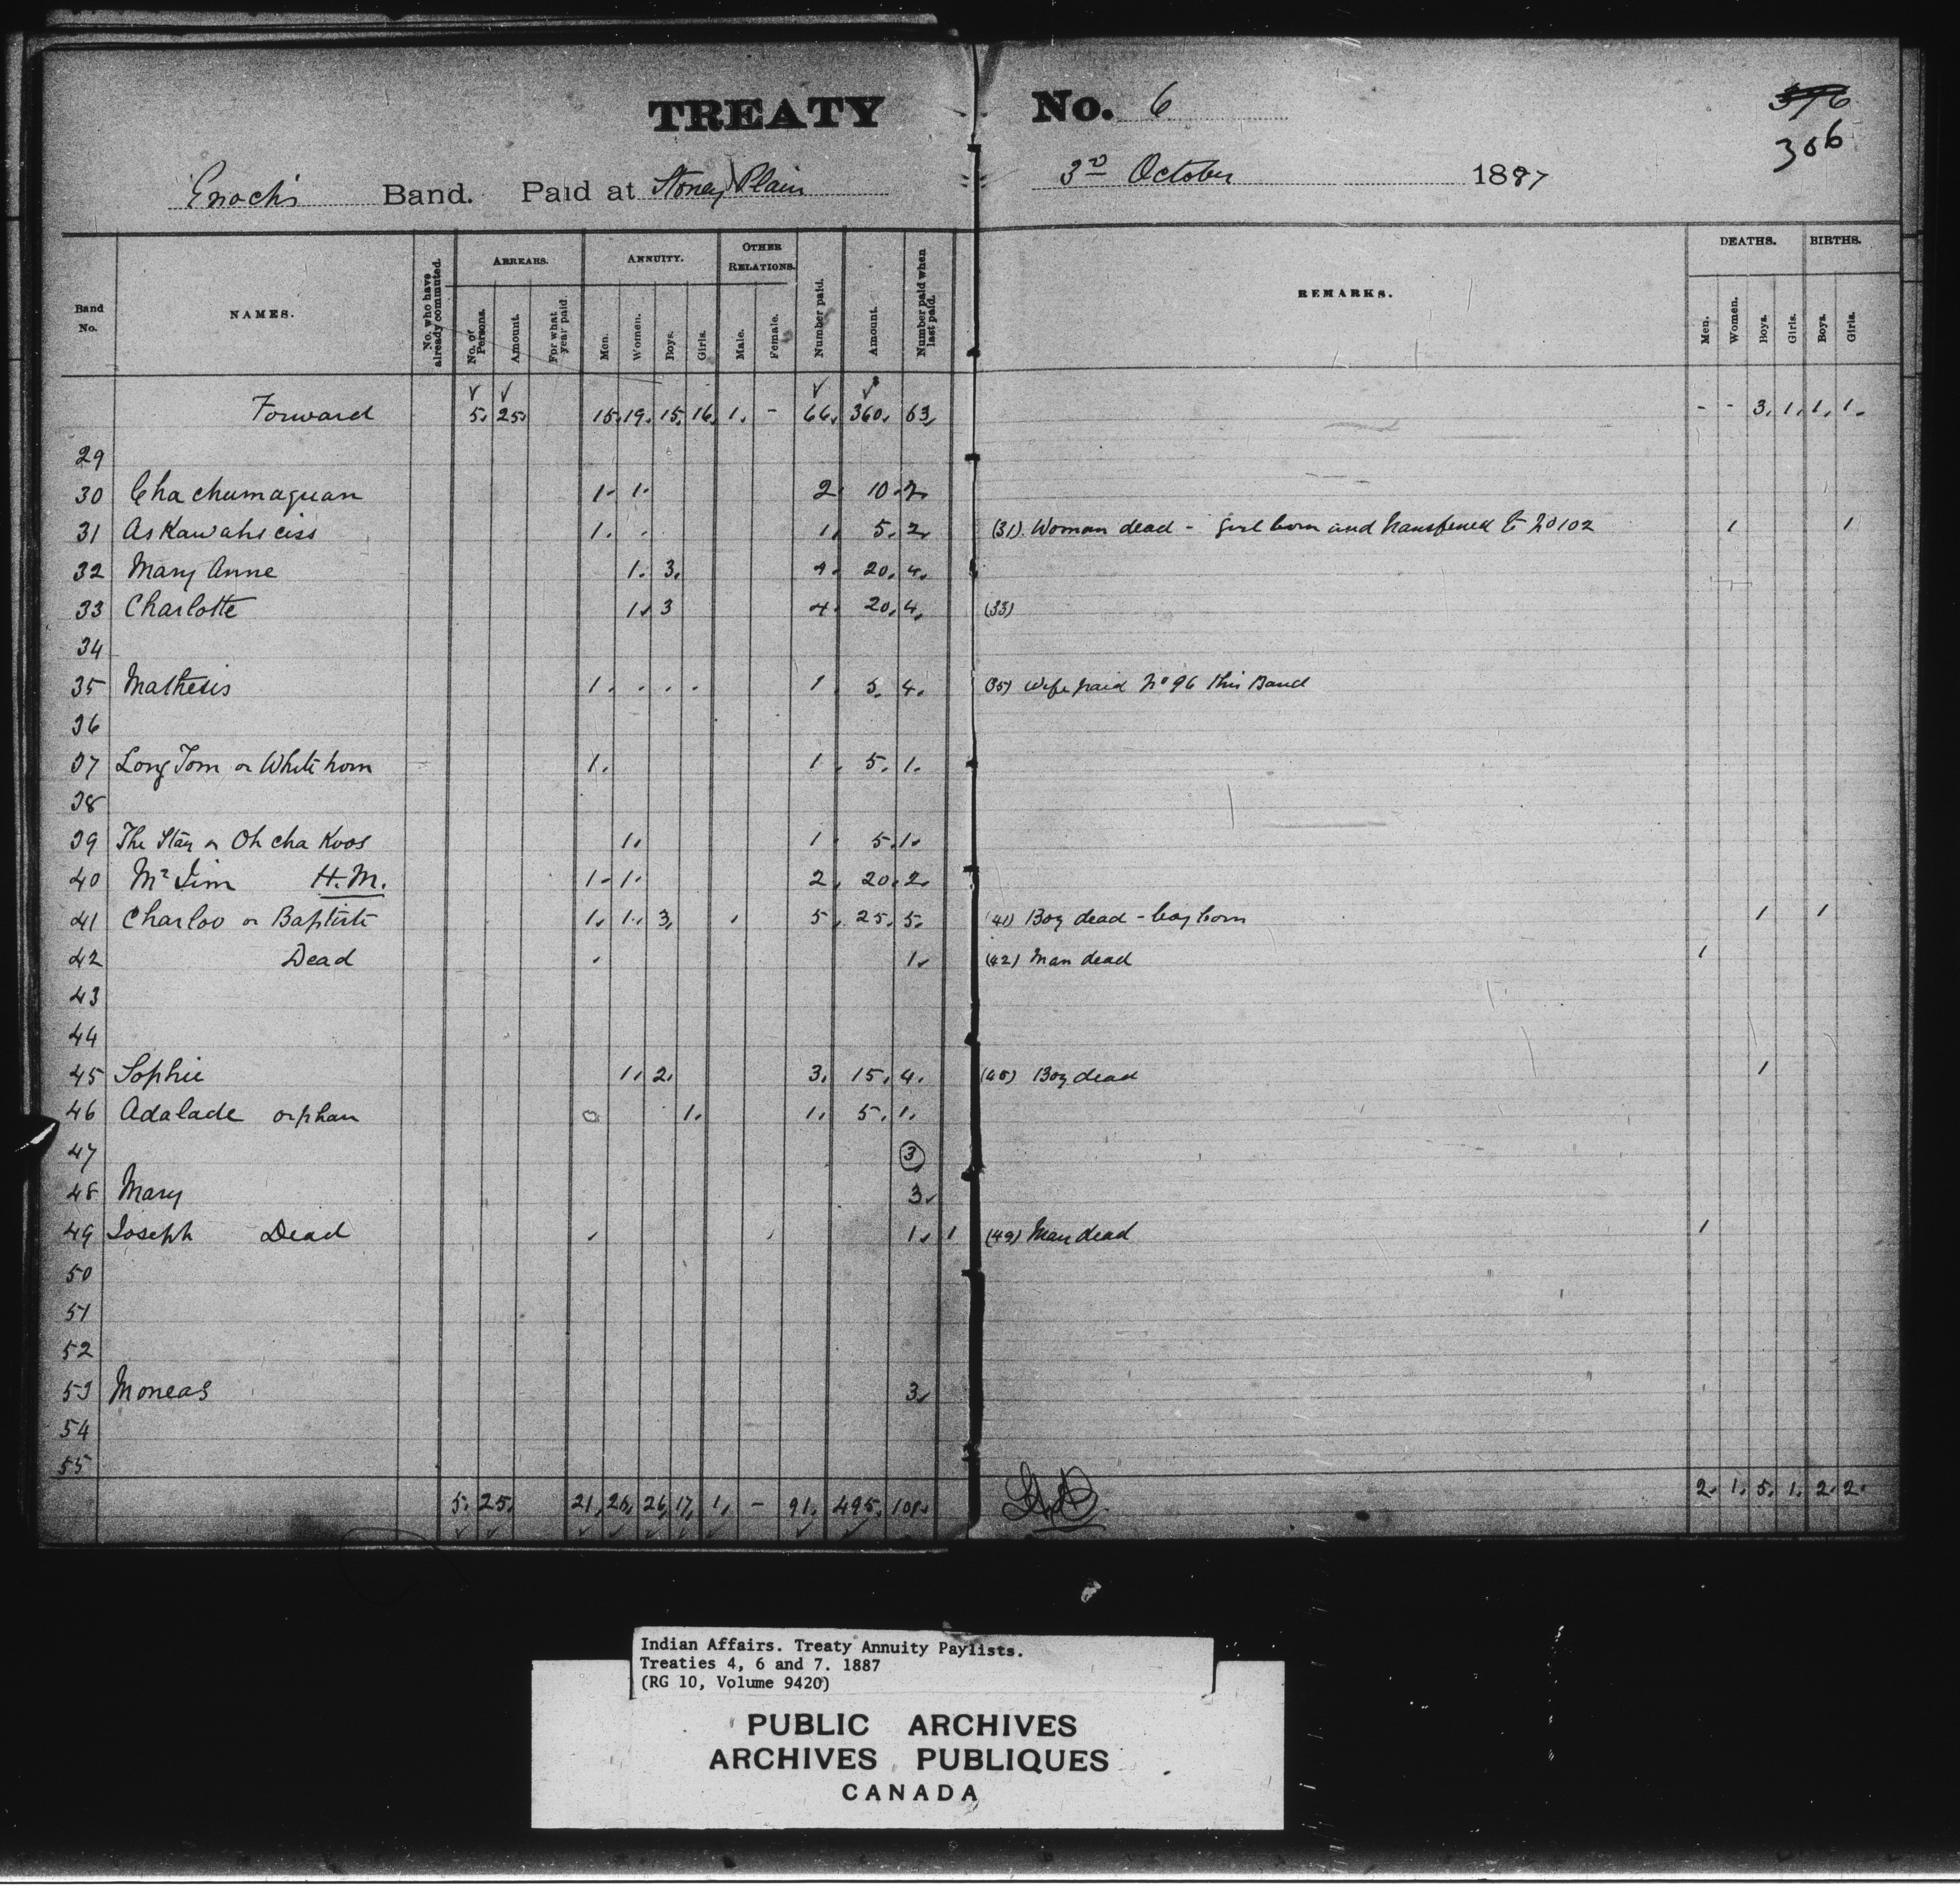 TREATY No. 6
306
Enoch's Band. Paid at Stoney Plain 3rd October 1887
Band No. NAMES. No. who have already commuted. ARREARS. No. of Persons. Amount. For what year paid. ANNUITY. Men. Women. Boys. Girls. OTHER RELATIONS. Male. Female. Number paid. Amount. Number paid when last paid. REMARKS. DEATHS. Men. Women. Boys. Girls. BIRTHS. Boys. Girls.
Forward 5. 25. 15. 19. 15. 16. 1. - 66. 360. 63. - - 3. 1. 1. 1.
29
30 Chachumaquan 1. 1. 2. 10. 2.
31 Askawahsciss 1. 1. 5. 2. (31). Woman dead - girl born and transferred to No 102 1 1
32 Mary Anne 1. 3. 4. 20. 4.
33 Charlotte 1. 3 4. 20. 4. (33)
34
35 Mathesis 1. 1 5. 4. (35) Wife paid No 96 this Band
36
37 Long Tom or White horn 1. 1. 5. 1.
38
39 The Star or Oh cha Koos 1. 1. 5. 1.
40 Mr Jim H.M. 1. 1. 2. 20. 2.
41 Charloo or Baptiste 1. 1. 3. 5. 25. 5. (41) Boy dead - boy born 1 1
42 Dead 1. (42) Man dead 1
43
44
45 Sophie 1. 2. 3. 15. 4. (45) Boy dead 1
46 Adalade orphan 1. 1. 5. 1.
47 3
48 Mary 3.
49 Joseph Dead 1. 1 (49) Man dead 1
50
51
52
53 Moneas 3.
54
55
5. 25. 21. 26. 26. 17. 1. - 91. 495. 101. 2. 1. 5. 1. 2. 2.
Indian Affairs. Treaty Annuity Paylists.
Treaties 4, 6 and 7. 1887
(RG 10, Volume 9420)
PUBLIC ARCHIVES
ARCHIVES PUBLIQUES
CANADA